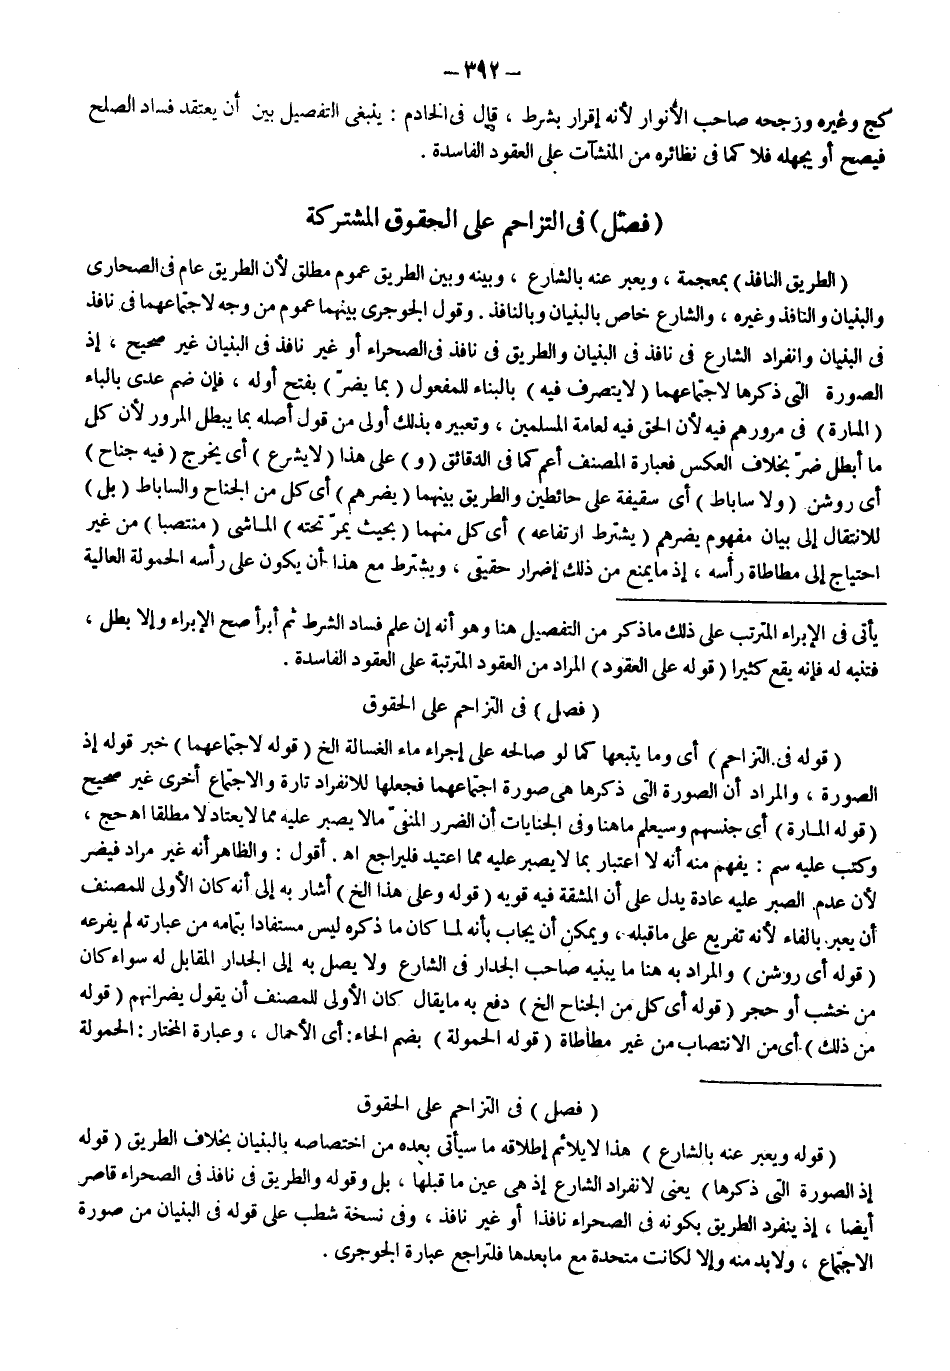 — ٣٩٢ —
كج وغيره ورجحه صاحب الأنوار لأنه إقرار بشرط ، قال فى الخادم : ينبغى التفصيل بين أن يعتقد فساد الصلح
فيصح أو يجهله فلا كما فى نظائره من المنشآت على العقود الفاسدة .
( فصل ) فى التزاحم على الحقوق المشتركة
( الطريق النافذ ) بمعجمة ، ويعبر عنه بالشارع ، وبينه وبين الطريق عموم مطلق لأن الطريق عام فى الصحارى
والبنيان والنافذ وغيره ، والشارع خاص بالبنيان وبالنافذ . وقول الجوجرى بينهما عموم من وجه لاجتماعهما فى نافذ
فى البنيان وانفراد الشارع فى نافذ فى البنيان والطريق فى نافذ فى الصحراء أو غير نافذ فى البنيان غير صحيح ، إذ
الصورة التى ذكرها لاجتماعهما ( لايتصرف فيه ) بالبناء للمفعول ( بما يضرّ ) بفتح أوله ، فإن ضم عدى بالباء
( المارة ) فى مرورهم فيه لأن الحق فيه لعامة المسلمين ، وتعبيره بذلك أولى من قول أصله بما يبطل المرور لأن كل
ما أبطل ضرّ بخلاف العكس فعبارة المصنف أعم كما فى الدقائق ( و ) على هذا ( لايشرع ) أى يخرج ( فيه جناح )
أى روشن ( ولا ساباط ) أى سقيفة على حائطين والطريق بينهما ( يضرهم ) أى كل من الجناح والساباط ( بل )
للانتقال إلى بيان مفهوم يضرهم ( يشترط ارتفاعه ) أى كل منهما ( بحيث يمرّ تحته ) الماشى ( منتصبا ) من غير
احتياج إلى مطاطاة رأسه ، إذ مايمنع من ذلك إضرار حقيقى ، ويشترط مع هذا أن يكون على رأسه الحمولة العالية
يأتى فى الإبراء المترتب على ذلك ماذكر من التفصيل هنا وهو أنه إن علم فساد الشرط ثم أبرأ صح الإبراء وإلا بطل ،
فتنبه له فإنه يقع كثيرا ( قوله على العقود ) المراد من العقود المترتبة على العقود الفاسدة .
( فصل ) فى التزاحم على الحقوق
( قوله فى التزاحم ) أى وما يتبعها كما لو صالحه على إجراء ماء الغسالة الخ ( قوله لاجتماعهما ) خبر قوله إذ
الصورة ، والمراد أن الصورة التى ذكرها هى صورة اجتماعهما فجعلها للانفراد تارة والاجتماع أخرى غير صحيح
( قوله المارة ) أى جنسهم وسيعلم ماهنا وفى الجنايات أن الضرر المنفىّ مالا يصبر عليه مما لايعتاد لا مطلقا اه حج ،
وكتب عليه سم : يفهم منه أنه لا اعتبار بما لايصبر عليه مما اعتيد فليراجع اه . أقول : والظاهر أنه غير مراد فيضر
لأن عدم الصبر عليه عادة يدل على أن المشقة فيه قوية ( قوله وعلى هذا الخ ) أشار به إلى أنه كان الأولى للمصنف
أن يعبر بالفاء لأنه تفريع على ماقبله ، ويمكن أن يجاب بأنه لما كان ما ذكره ليس مستفادا بتمامه من عبارته لم يفرعه
( قوله أى روشن ) والمراد به هنا ما يبنيه صاحب الجدار فى الشارع ولا يصل به إلى الجدار المقابل له سواء كان
من خشب أو حجر ( قوله أى كل من الجناح الخ ) دفع به مايقال كان الأولى للمصنف أن يقول يضرانهم ( قوله
من ذلك ) أى من الانتصاب من غير مطأطاة ( قوله الحمولة ) بضم الحاء : أى الأحمال ، وعبارة المختار : الحمولة
( فصل ) فى التزاحم على الحقوق
( قوله ويعبر عنه بالشارع ) هذا لايلائم إطلاقه ما سيأتى بعده من اختصاصه بالبنيان بخلاف الطريق ( قوله
إذ الصورة التى ذكرها ) يعنى لانفراد الشارع إذ هى عين ما قبلها ، بل وقوله والطريق فى نافذ فى الصحراء قاصر
أيضا ، إذ ينفرد الطريق بكونه فى الصحراء نافذا أو غير نافذ ، وفى نسخة شطب على قوله فى البنيان من صورة
الاجتماع ، ولابد منه وإلا لكانت متحدة مع مابعدها فلتراجع عبارة الجوجرى .